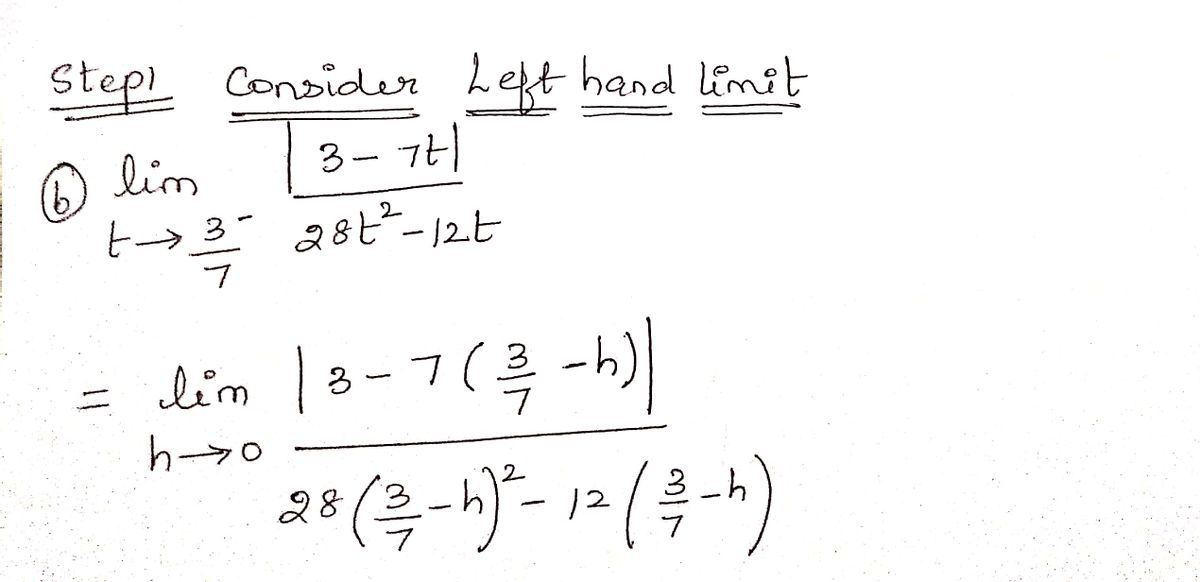 Step1 Consider Left hand limit
ⓑ lim |3 - 7t|
t→3/7⁻ 28t²-12t
= lim |3-7(3/7 -h)|
h→0
28(3/7-h)²- 12(3/7-h)